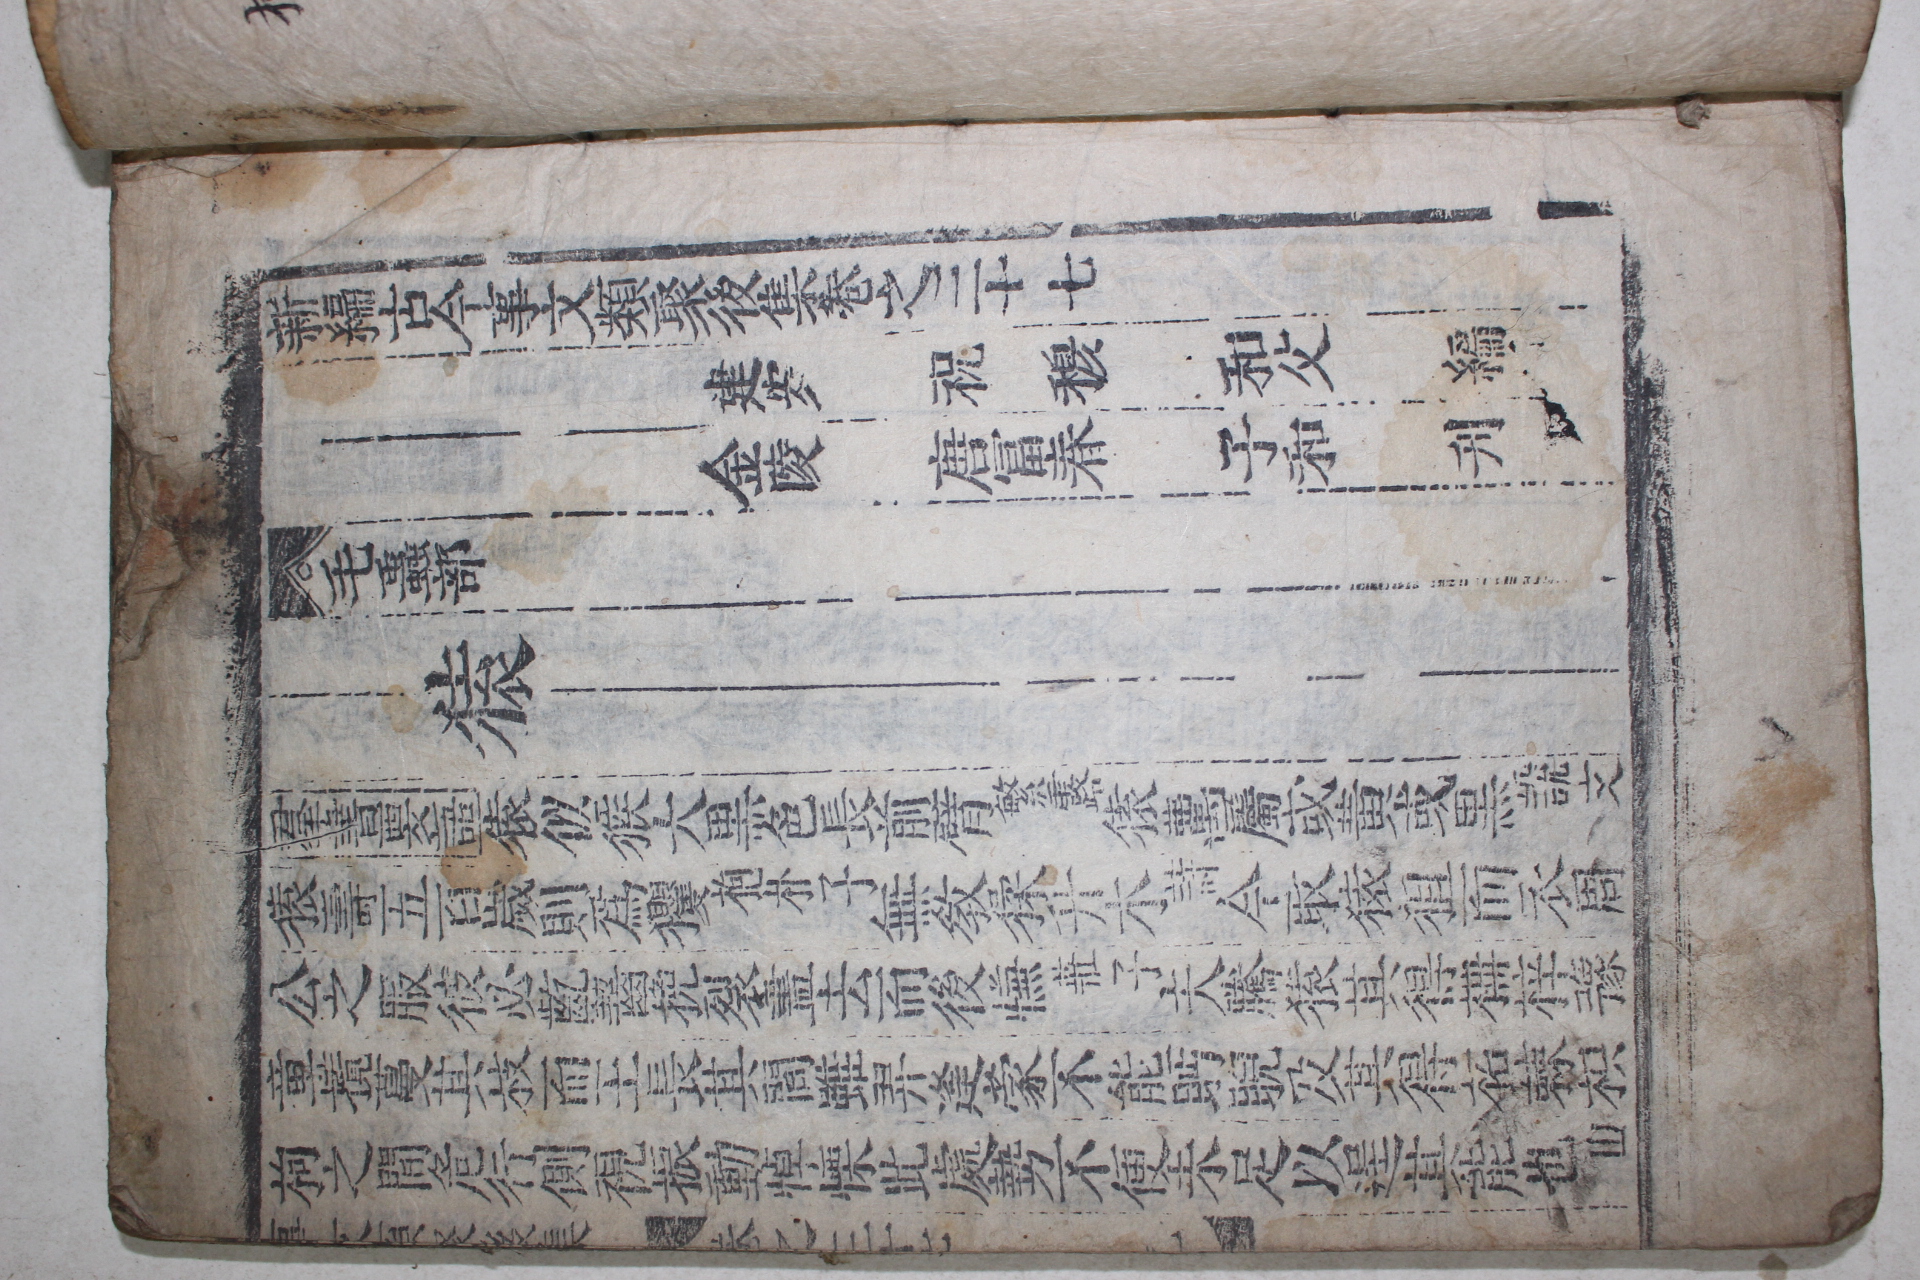 新編古今事文類聚後集卷之三十七
建安 祝 穆 和父 編
金陵 唐冨春 子和 刋
毛蟲部
猿
羣書要語猿似猴大黒色長前臂繁露猿禺屬或黄或黒說文
猿壽五百歲則爲玃抱朴子無敎猱升木詩今取猿狙而衣周
公之服彼必齕齧挽裂盡去而後慊莊子夫騰猿其得楠梓豫
章攬蔓其枝而王長其間雖羿逢蒙不能眄睨及其得柘棘枳
枸之間危行側視振動悼慄此處勢不便未足以逞其能也山
事文類聚後集 卷之三十七